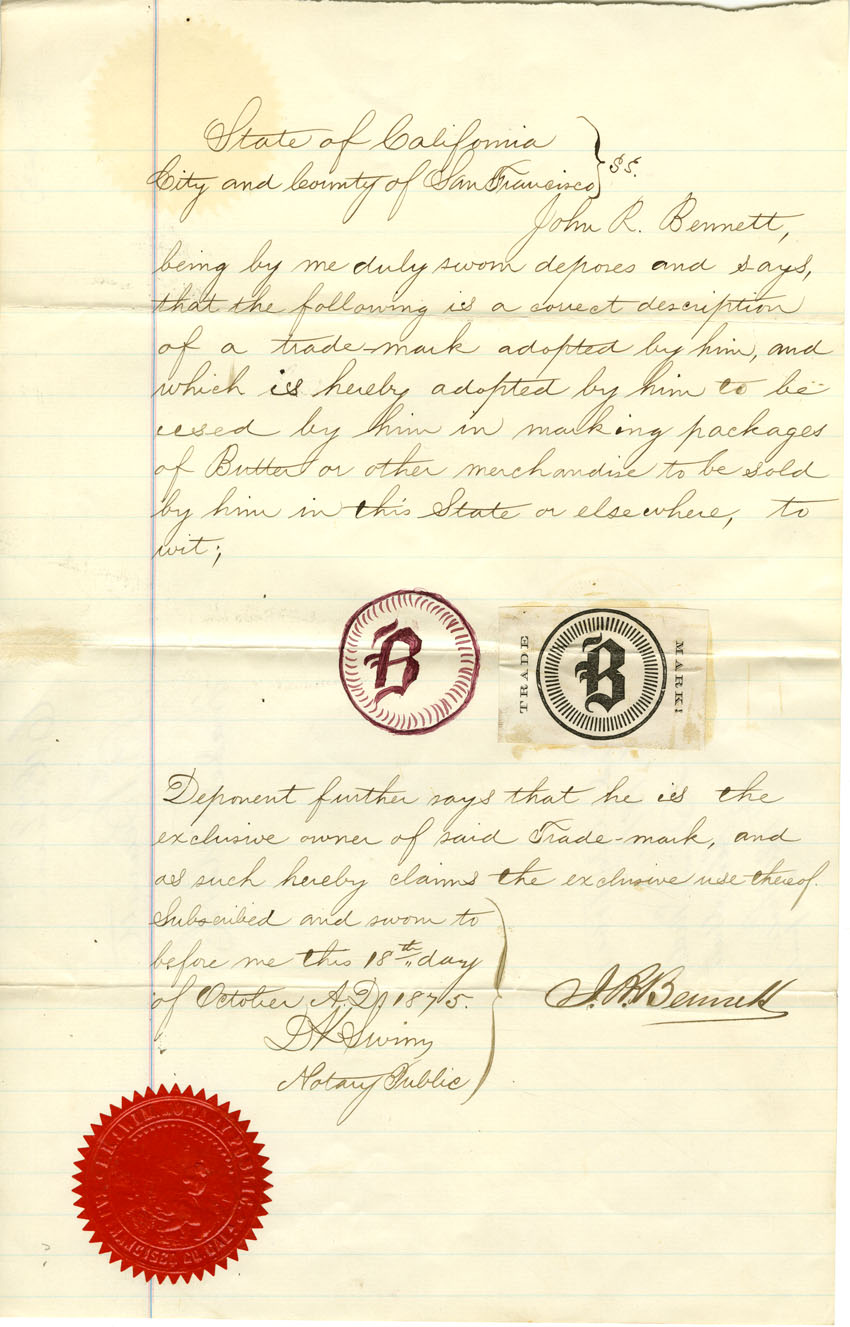 State of California
City and County of San Francisco } SS.
John R. Bennett,
being by me duly sworn deposes and says,
that the following is a correct description
of a trade-mark adopted by him, and
which is hereby adopted by him to be
used by him in marking packages
of Butter or other merchandise to be sold
by him in this State or elsewhere, to
wit;
B
TRADE B MARK!
Deponent further says that he is the
exclusive owner of said Trade-mark, and
as such hereby claims the exclusive use thereof.
Subscribed and sworn to
before me this 18th day
of October A.D. 1875.
J. R. Bennett
Notary Public
NOTARY PUBLIC